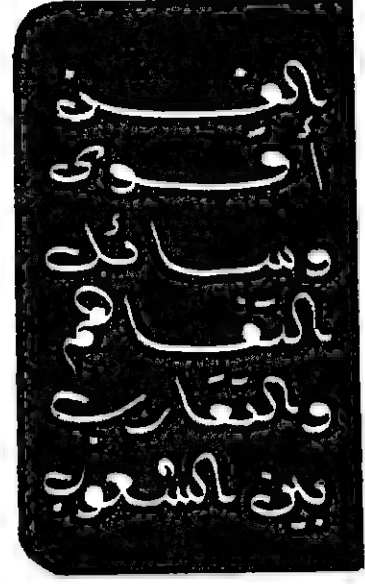 الفن
أقوى
وسائل
التفاهم
والتقارب
بين الشعوب